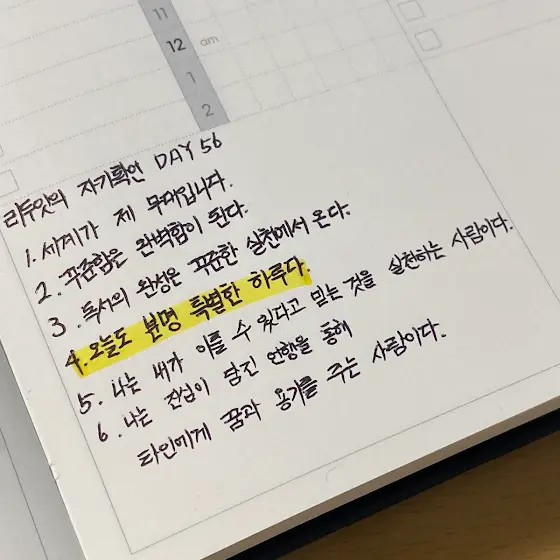 11
12 am
1
2
리두잇의 자기확언 DAY 56
1. 세계가 제 무대입니다.
2. 꾸준함은 완벽함이 된다.
3. 독서의 완성은 꾸준한 실천에서 온다.
4. 오늘도 분명 특별한 하루다.
5. 나는 내가 이룰 수 있다고 믿는 것을 실천하는 사람이다.
6. 나는 진심이 담긴 언행을 통해
타인에게 꿈과 용기를 주는 사람이다.